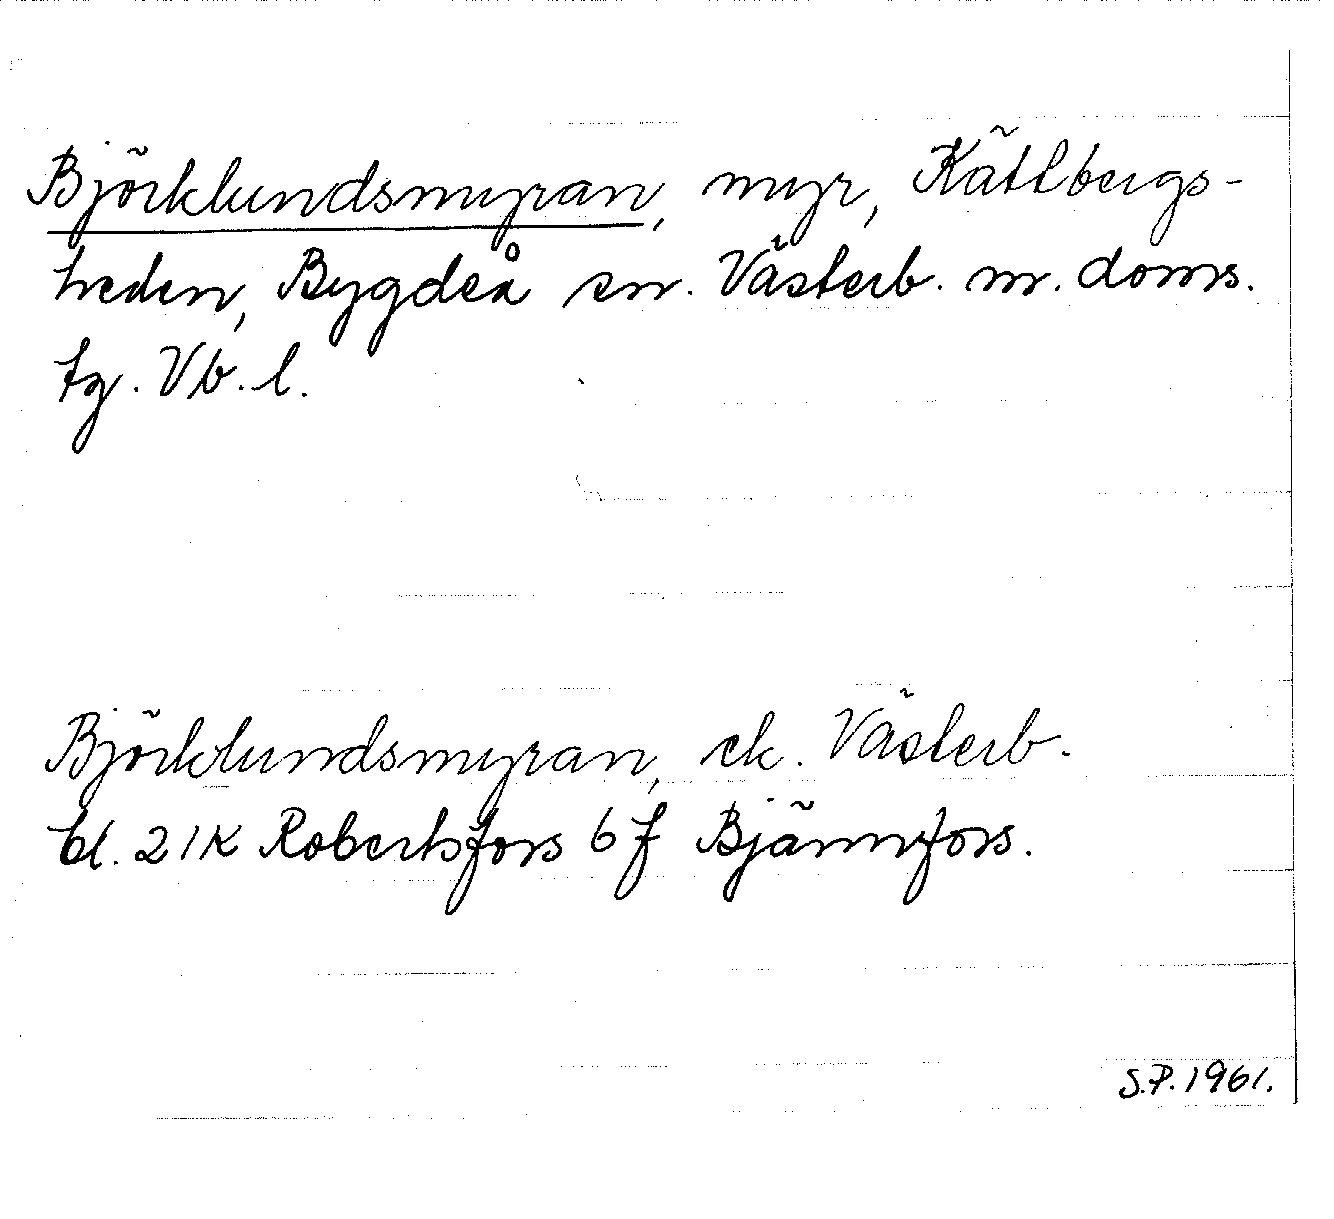 Björklundsmyran, myr, Kätlbergs-
heden, Bygdeå sn. Västerb. m. doms.
tg. Vb. l.
Björklundsmyran, ek. Västerb.
bl. 21K Robertsfors 6f Bjännfors.
S.P. 1961.